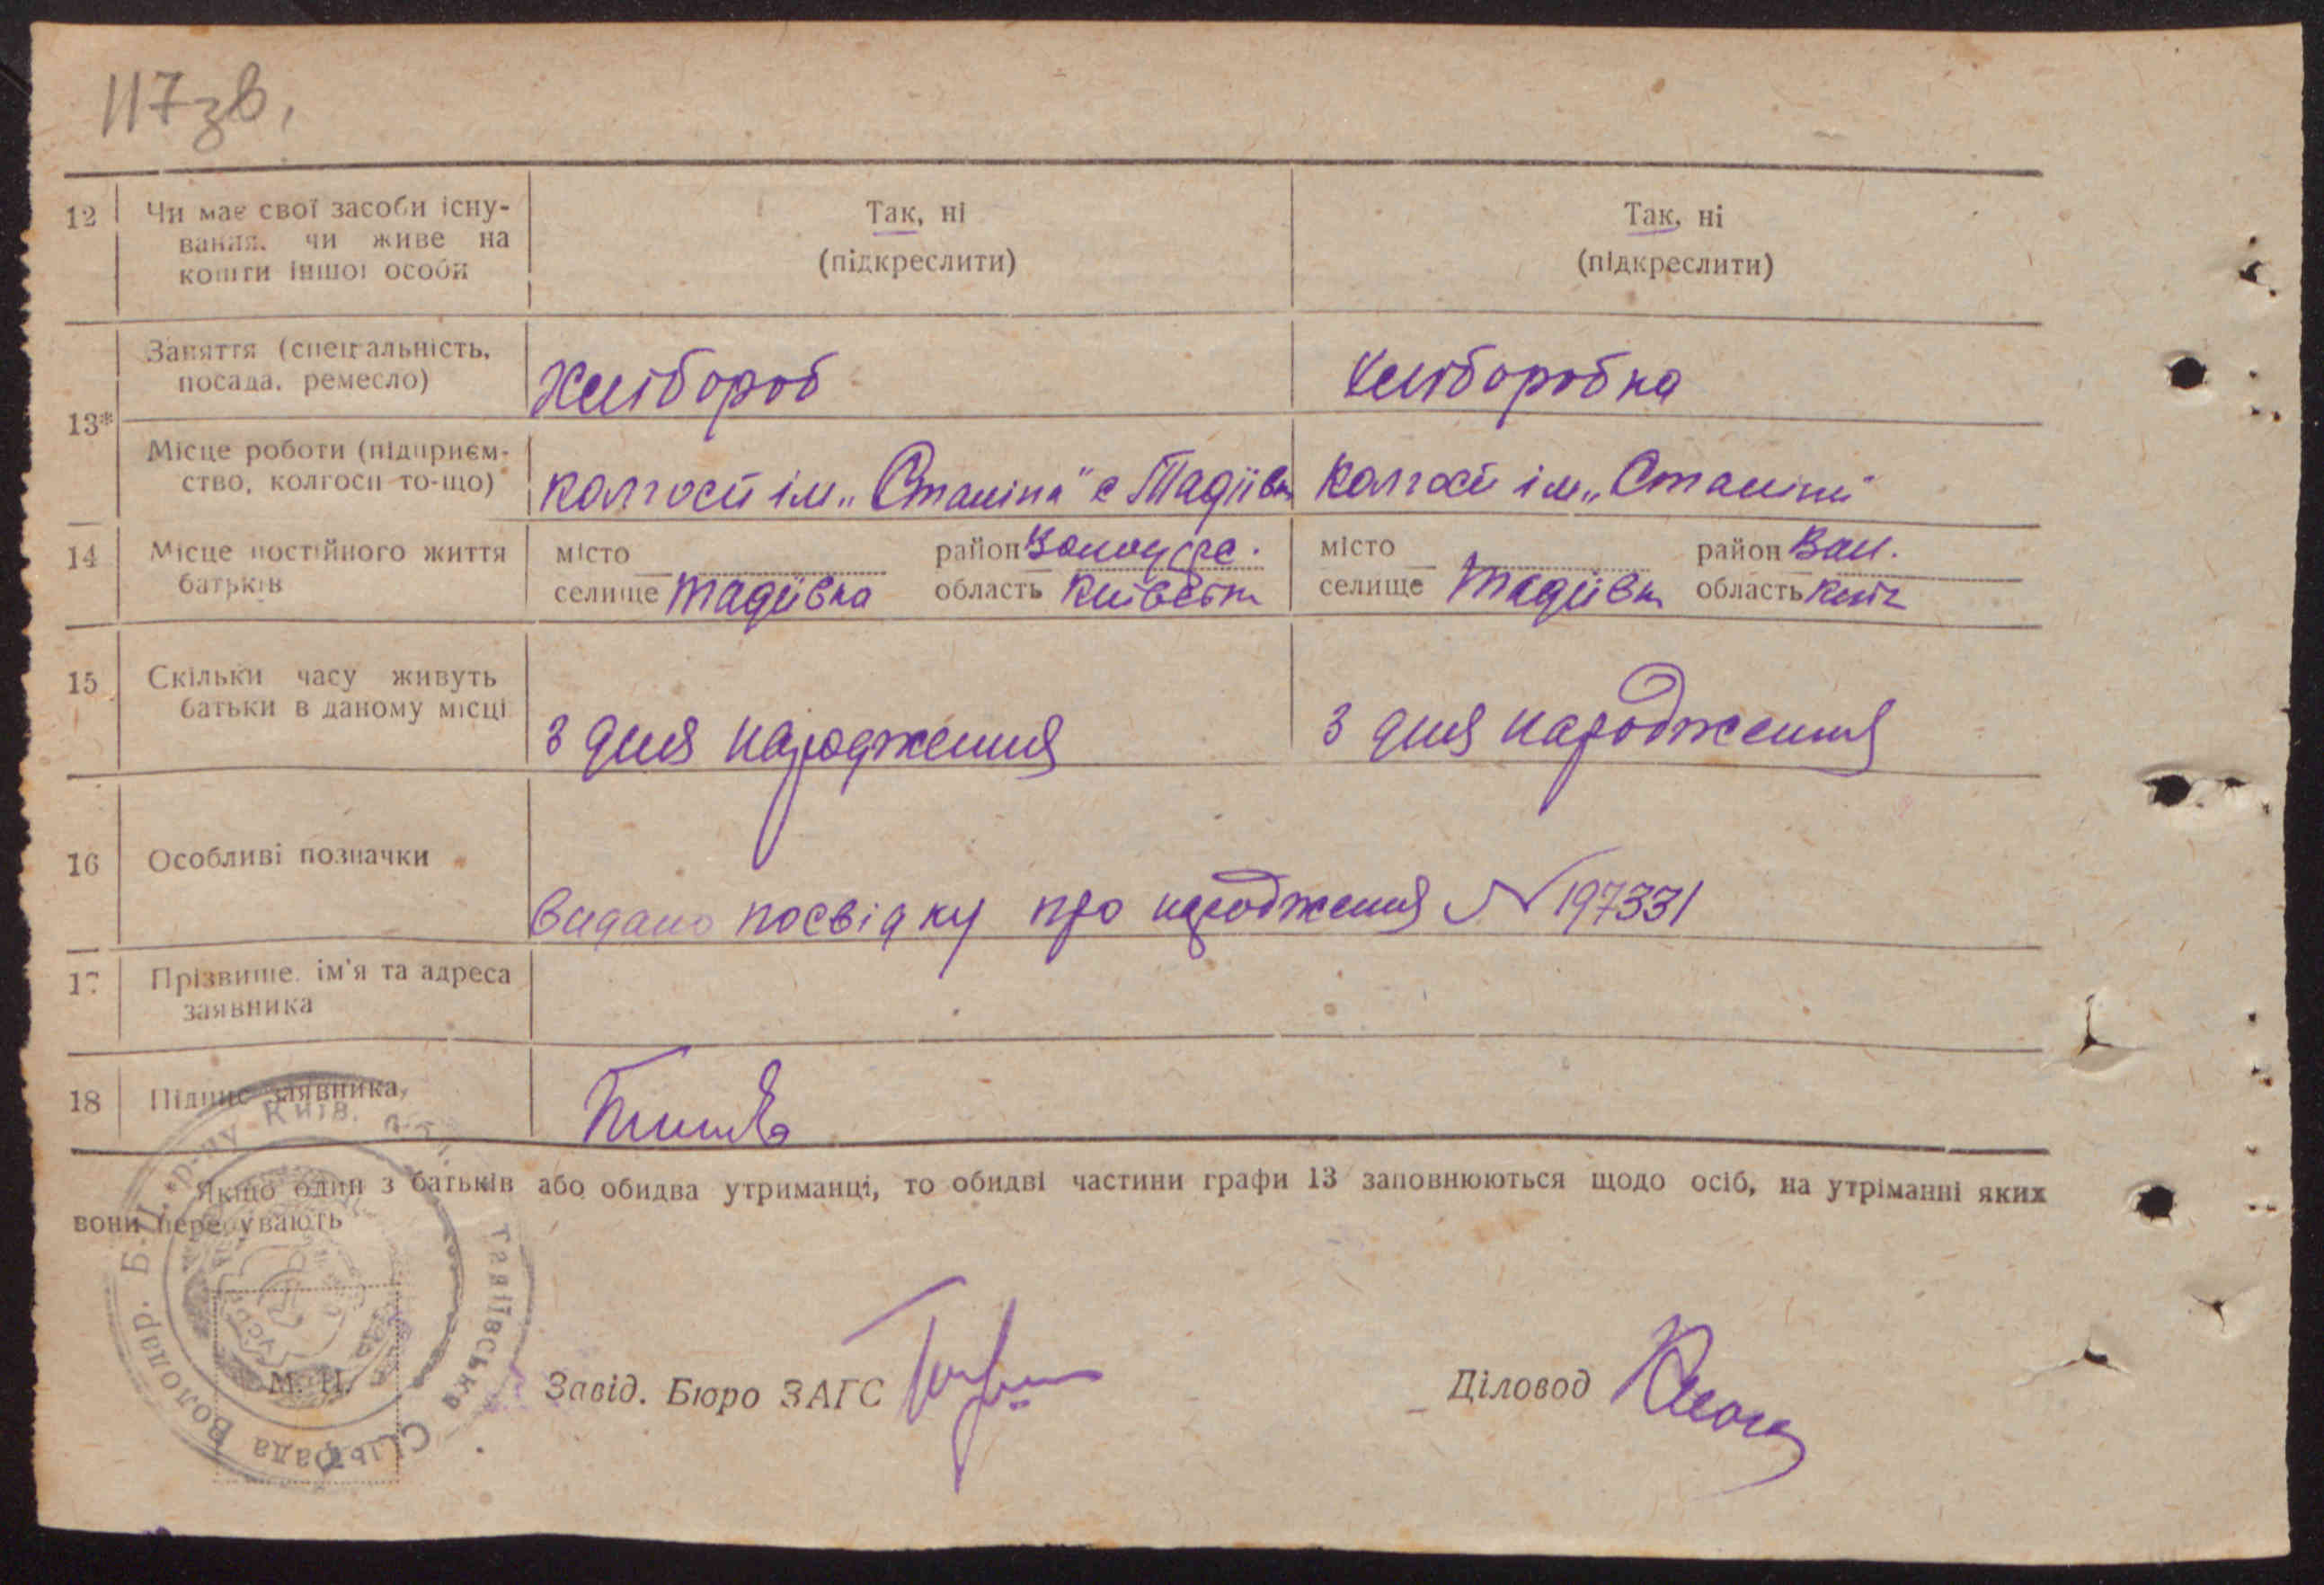 117зв.
12 Чи має свої засоби існу-
вання, чи живе на
кошти іншої особи
Так, ні
(підкреслити)
Так, ні
(підкреслити)
13*
Заняття (спеціальність,
посада, ремесло)
Хлібороб
Хліборобка
Місце роботи (підприєм-
ство, колгосп то-що)
колгосп ім. „Сталіна" с Тадіївка
колгосп ім. „Сталіна"
14 Місце постійного життя
батьків
місто район Володарс.
селище Тадіївка область Київська
місто район Вол.
селище Тадіївка область Київ
15 Скільки часу живуть
батьки в даному місці
З дня народження
З дня народження
16 Особливі позначки
видано посвідку про народження N 197331
17 Прізвище, ім'я та адреса
заявника
18 Підпис заявника
Якщо один з батьків або обидва утриманці, то обидві частини графи 13 заповнюються щодо осіб, на утріманні яких
вони перебувають
Тадіївська Сільрада Володар. Б-Ц. р-ну Київ.
М. П.
Завід. Бюро ЗАГС
Діловод